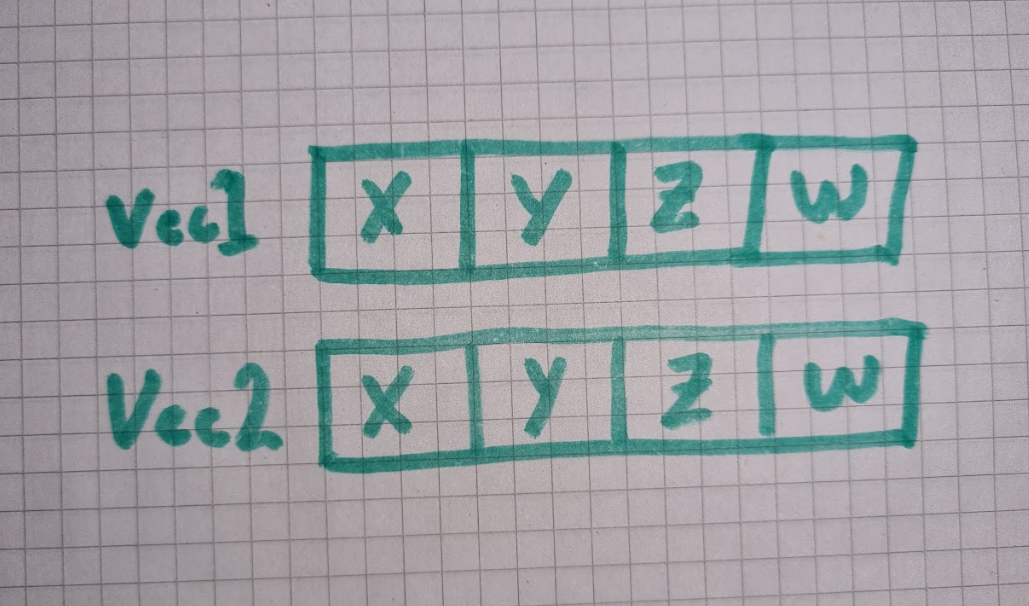 Vec1 X Y Z W
Vec2 X Y Z W